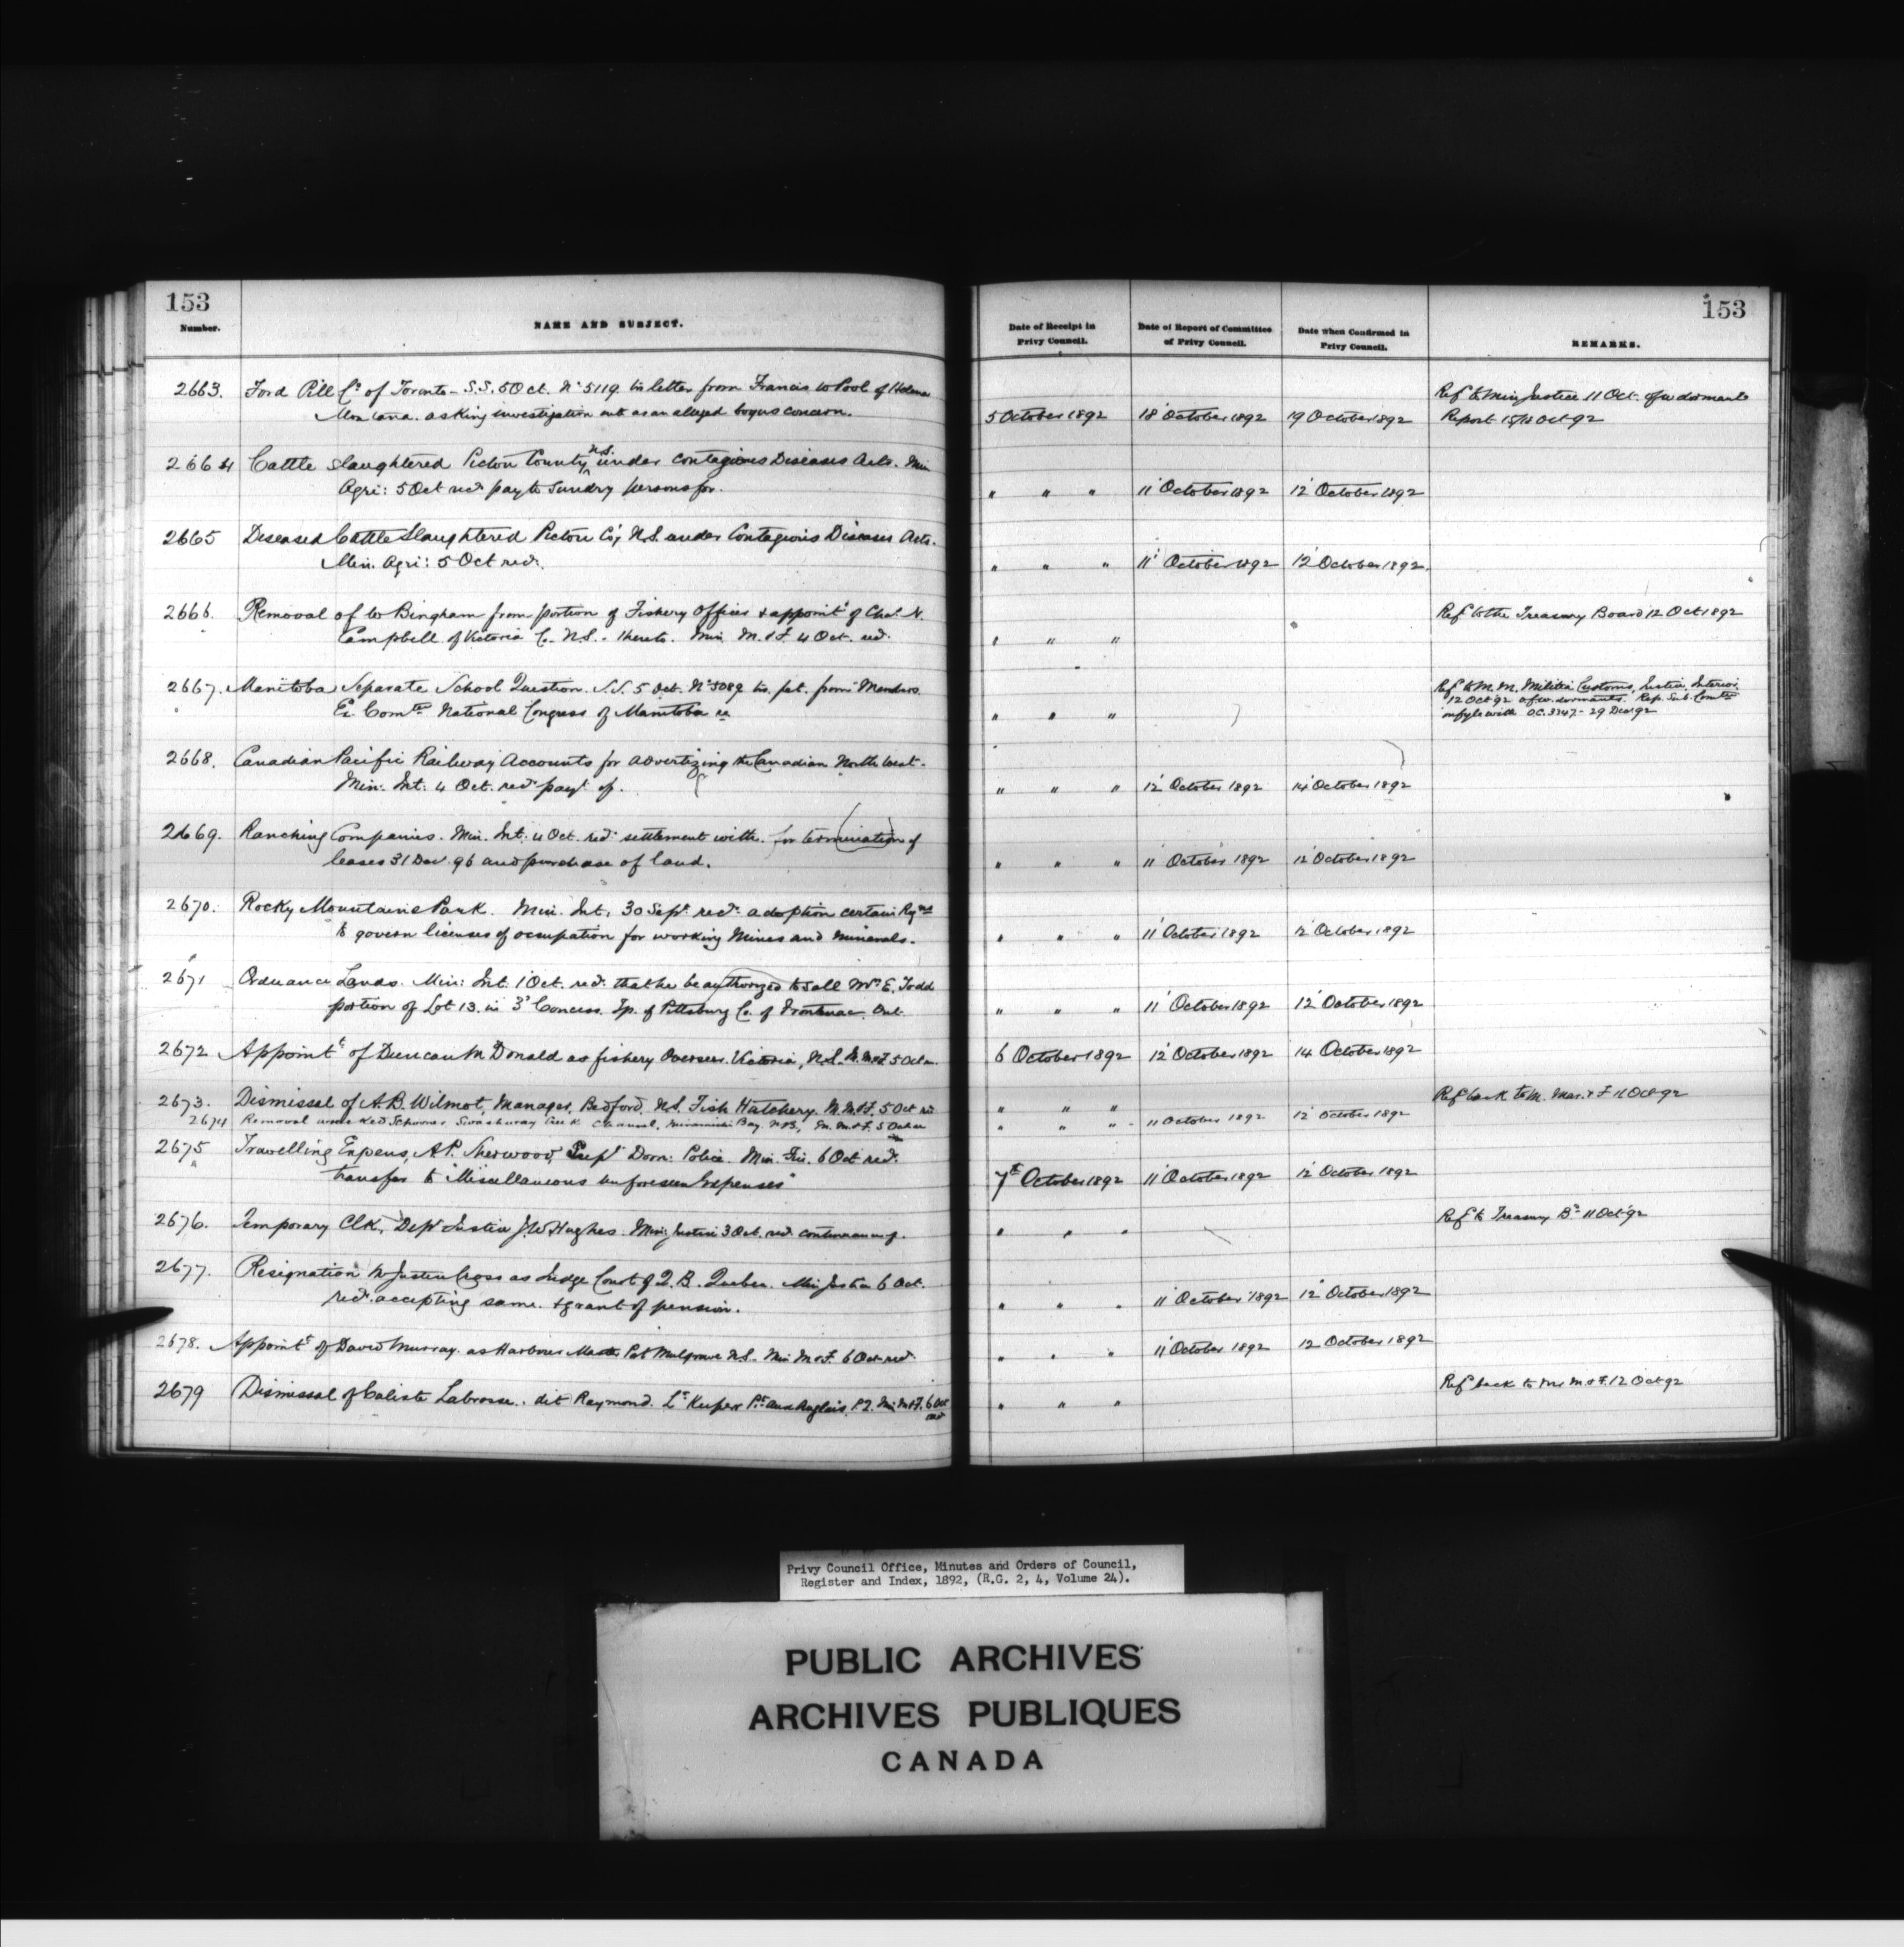 153
Number.
NAME AND SUBJECT.
Date of Receipt in
Privy Council.
Date of Report of Committee
of Privy Council.
Date when Confirmed in
Privy Council.
REMARKS.
153
2663. Ford Pill Co of Toronto - S.S. 5 Oct. No 5119. letter from Francis W Pool of Helena
Montana. asking investigation as an alleged bogus concern.
5 October 1892 18 October 1892 19 October 1892
Ref to Min Justice 11 Oct.
Report 15/18 Oct 92
2664 Cattle slaughtered Pictou County N.S. under Contagious Diseases Acts. Min
Agri: 5 Oct recd pay to sundry persons for.
" " " 11 October 1892 12 October 1892
2665 Diseased Cattle Slaughtered Pictou Co, N.S. under Contagious Diseases Acts.
Min. Agri: 5 Oct recd.
" " " 11 October 1892 12 October 1892.
2666. Removal of W Bingham from portion of Fishery Officer & appoint of Chas. N.
Campbell of Victoria Co. N.S. thereto. Min. M. & F. 4 Oct. recd.
" " "
Ref to the Treasury Board 12 Oct 1892
2667. Manitoba Separate School Question. S.S. 5 Oct. No 5089 pet. from Members
Ex. Comtee National Congress of Manitoba
" " "
Ref to M. M. Militia Customs, Justice, Interior,
12 Oct 92 Rep. Sub. Comtee
on fyle with O.C. 3347 - 29 Dec 92
2668. Canadian Pacific Railway Accounts for advertizing the Canadian North West.
Min. Int. 4 Oct. recd payt of.
" " " 12 October 1892 14 October 1892
2669. Ranching Companies. Min. Int. 4 Oct. recd settlement with. for termination of
leases 31 Dec 96 and purchase of land.
" " " 11 October 1892 12 October 1892
2670. Rocky Mountains Park. Min. Int. 30 Sept recd adoption certain Regns
to govern licenses of occupation for working Mines and Minerals.
" " " 11 October 1892 12 October 1892
2671 Ordnance Lands. Min. Int. 1 Oct. recd that he be authorized to sell Mrs E. Todd
portion of Lot 13. in 3 Concess. Tp. of Pittsburg Co. of Frontenac. Ont.
" " " 11 October 1892 12 October 1892
2672 Appoint of Duncan McDonald as fishery Overseer. Victoria, N.S. M. M & F. 5 Oct
6 October 1892 12 October 1892 14 October 1892
2673. Dismissal of A. B. Wilmot, Manager, Bedford, N.S. Fish Hatchery. M. M & F. 5 Oct
" " "
Ref back to M. Mar. & F 11 Oct 92
2674 Removal wrecked Schooner Channel, Miramichi Bay. N.B., M. M. & F. 5 Oct
" " " 11 October 1892 12 October 1892
2675 Travelling Expens, A P. Sherwood, Supt Dom: Police. Min. 6 Oct recd.
transfer to "Miscellaneous Unforeseen Expenses"
7th October 1892 11 October 1892 12 October 1892
2676. Temporary Clk, Dept Justice J. W Hughes. Min: Justice 3 Oct. recd continuance of.
" " "
Ref to Treasury Bd 11 Oct 92
2677. Resignation Mr Justice Cross as Judge Court of Q. B. Quebec. Min Justice 6 Oct.
recd accepting same. & grant of pension.
" " " 11 October 1892 12 October 1892
2678. Appoint of David Murray. as Harbour Master Port Mulgrave N.S. Min M & F. 6 Oct recd.
" " " 11 October 1892 12 October 1892
2679 Dismissal of Caliste Labrosse. dit Raymond. Lt Keeper Pte aux Anglais, P.Q. Min M & F. 6 Oct
recd
" " "
Ref back to Mr M & F. 12 Oct 92
Privy Council Office, Minutes and Orders of Council,
Register and Index, 1892, (R.G. 2, 4, Volume 24).
PUBLIC ARCHIVES
ARCHIVES PUBLIQUES
CANADA